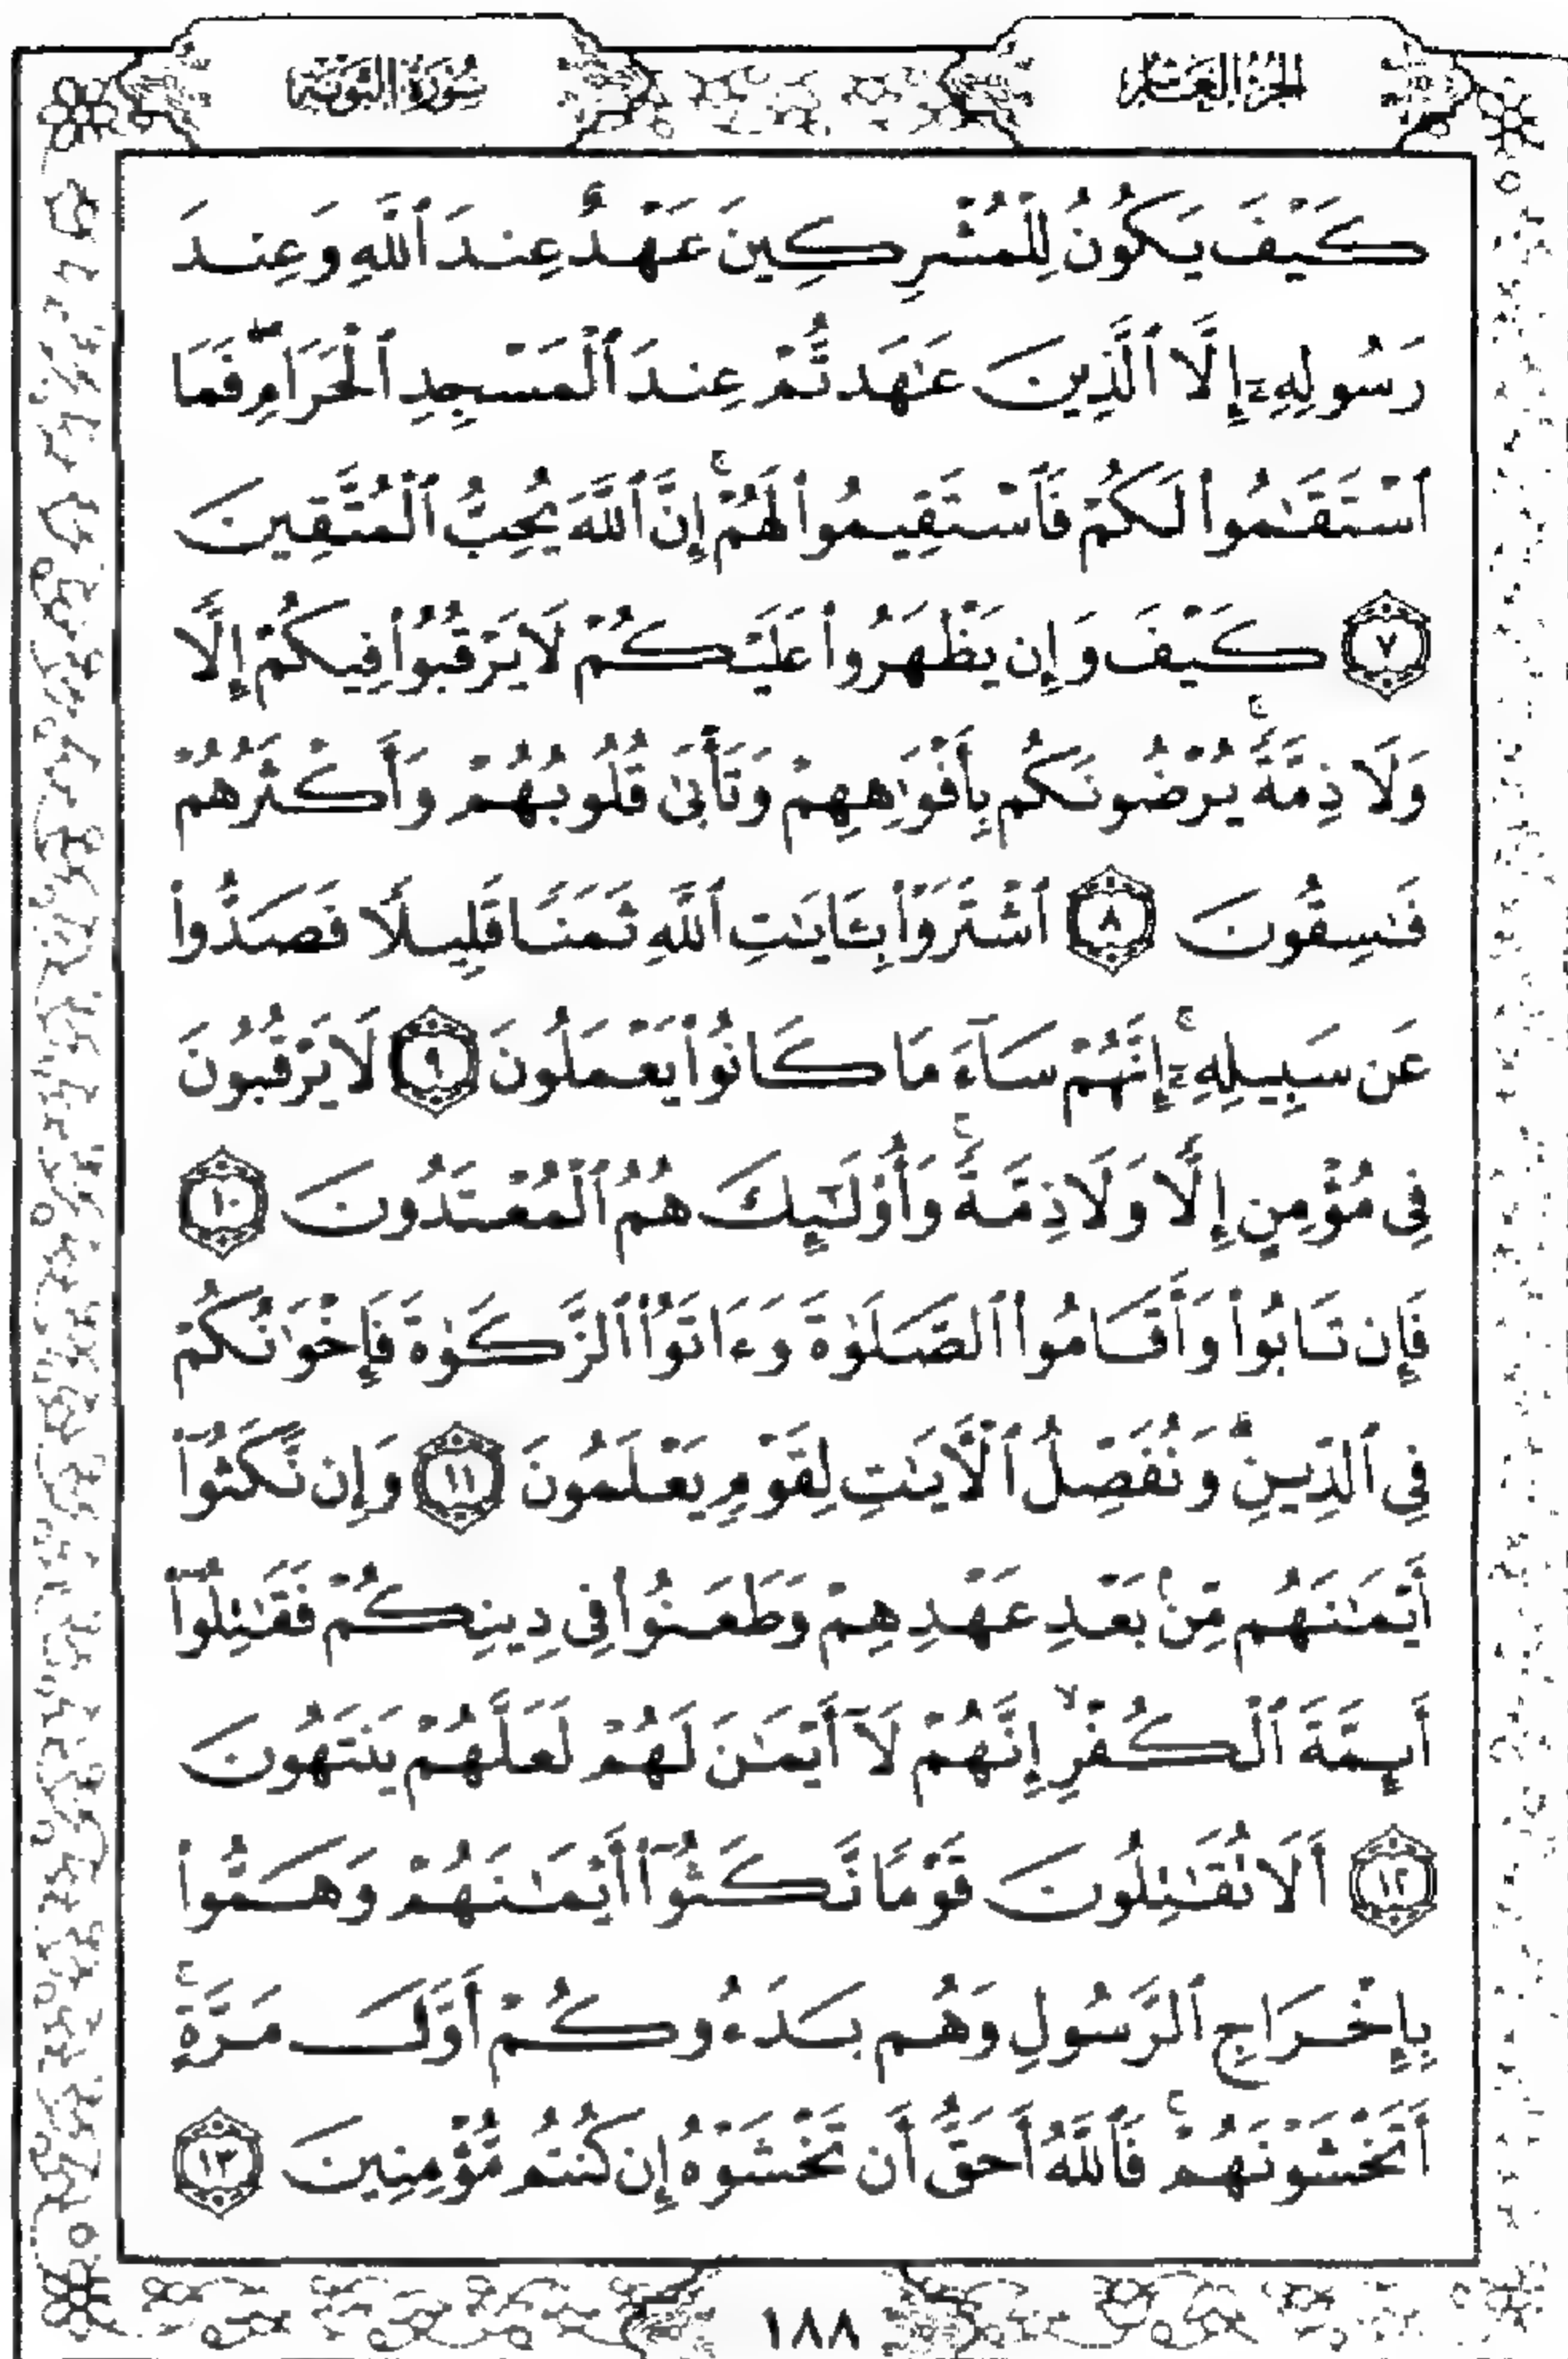 الجزء العاشر
سورة التوبة
كَيْفَ يَكُونُ لِلْمُشْرِكِينَ عَهْدٌ عِندَ ٱللَّهِ وَعِندَ
رَسُولِهِۦٓ إِلَّا ٱلَّذِينَ عَـٰهَدتُّمْ عِندَ ٱلْمَسْجِدِ ٱلْحَرَامِ ۖ فَمَا
ٱسْتَقَـٰمُوا۟ لَكُمْ فَٱسْتَقِيمُوا۟ لَهُمْ ۚ إِنَّ ٱللَّهَ يُحِبُّ ٱلْمُتَّقِينَ
٧ كَيْفَ وَإِن يَظْهَرُوا۟ عَلَيْكُمْ لَا يَرْقُبُوا۟ فِيكُمْ إِلًّا
وَلَا ذِمَّةً ۚ يُرْضُونَكُم بِأَفْوَٰهِهِمْ وَتَأْبَىٰ قُلُوبُهُمْ وَأَكْثَرُهُمْ
فَـٰسِقُونَ ٨ ٱشْتَرَوْا۟ بِـَٔايَـٰتِ ٱللَّهِ ثَمَنًا قَلِيلًا فَصَدُّوا۟
عَن سَبِيلِهِۦٓ ۚ إِنَّهُمْ سَآءَ مَا كَانُوا۟ يَعْمَلُونَ ٩ لَا يَرْقُبُونَ
فِى مُؤْمِنٍ إِلًّا وَلَا ذِمَّةً ۚ وَأُو۟لَـٰٓئِكَ هُمُ ٱلْمُعْتَدُونَ ١٠
فَإِن تَابُوا۟ وَأَقَامُوا۟ ٱلصَّلَوٰةَ وَءَاتَوُا۟ ٱلزَّكَوٰةَ فَإِخْوَٰنُكُمْ
فِى ٱلدِّينِ ۗ وَنُفَصِّلُ ٱلْـَٔايَـٰتِ لِقَوْمٍ يَعْلَمُونَ ١١ وَإِن نَّكَثُوٓا۟
أَيْمَـٰنَهُم مِّنۢ بَعْدِ عَهْدِهِمْ وَطَعَنُوا۟ فِى دِينِكُمْ فَقَـٰتِلُوٓا۟
أَئِمَّةَ ٱلْكُفْرِ ۙ إِنَّهُمْ لَآ أَيْمَـٰنَ لَهُمْ لَعَلَّهُمْ يَنتَهُونَ
١٢ أَلَا تُقَـٰتِلُونَ قَوْمًا نَّكَثُوٓا۟ أَيْمَـٰنَهُمْ وَهَمُّوا۟
بِإِخْرَاجِ ٱلرَّسُولِ وَهُم بَدَءُوكُمْ أَوَّلَ مَرَّةٍ ۚ
أَتَخْشَوْنَهُمْ ۚ فَٱللَّهُ أَحَقُّ أَن تَخْشَوْهُ إِن كُنتُم مُّؤْمِنِينَ ١٣
١٨٨